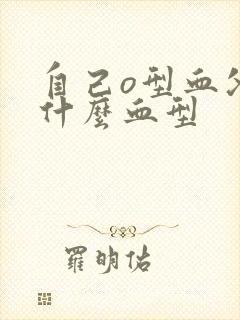 自己o型血
什麼血型
羅明佑